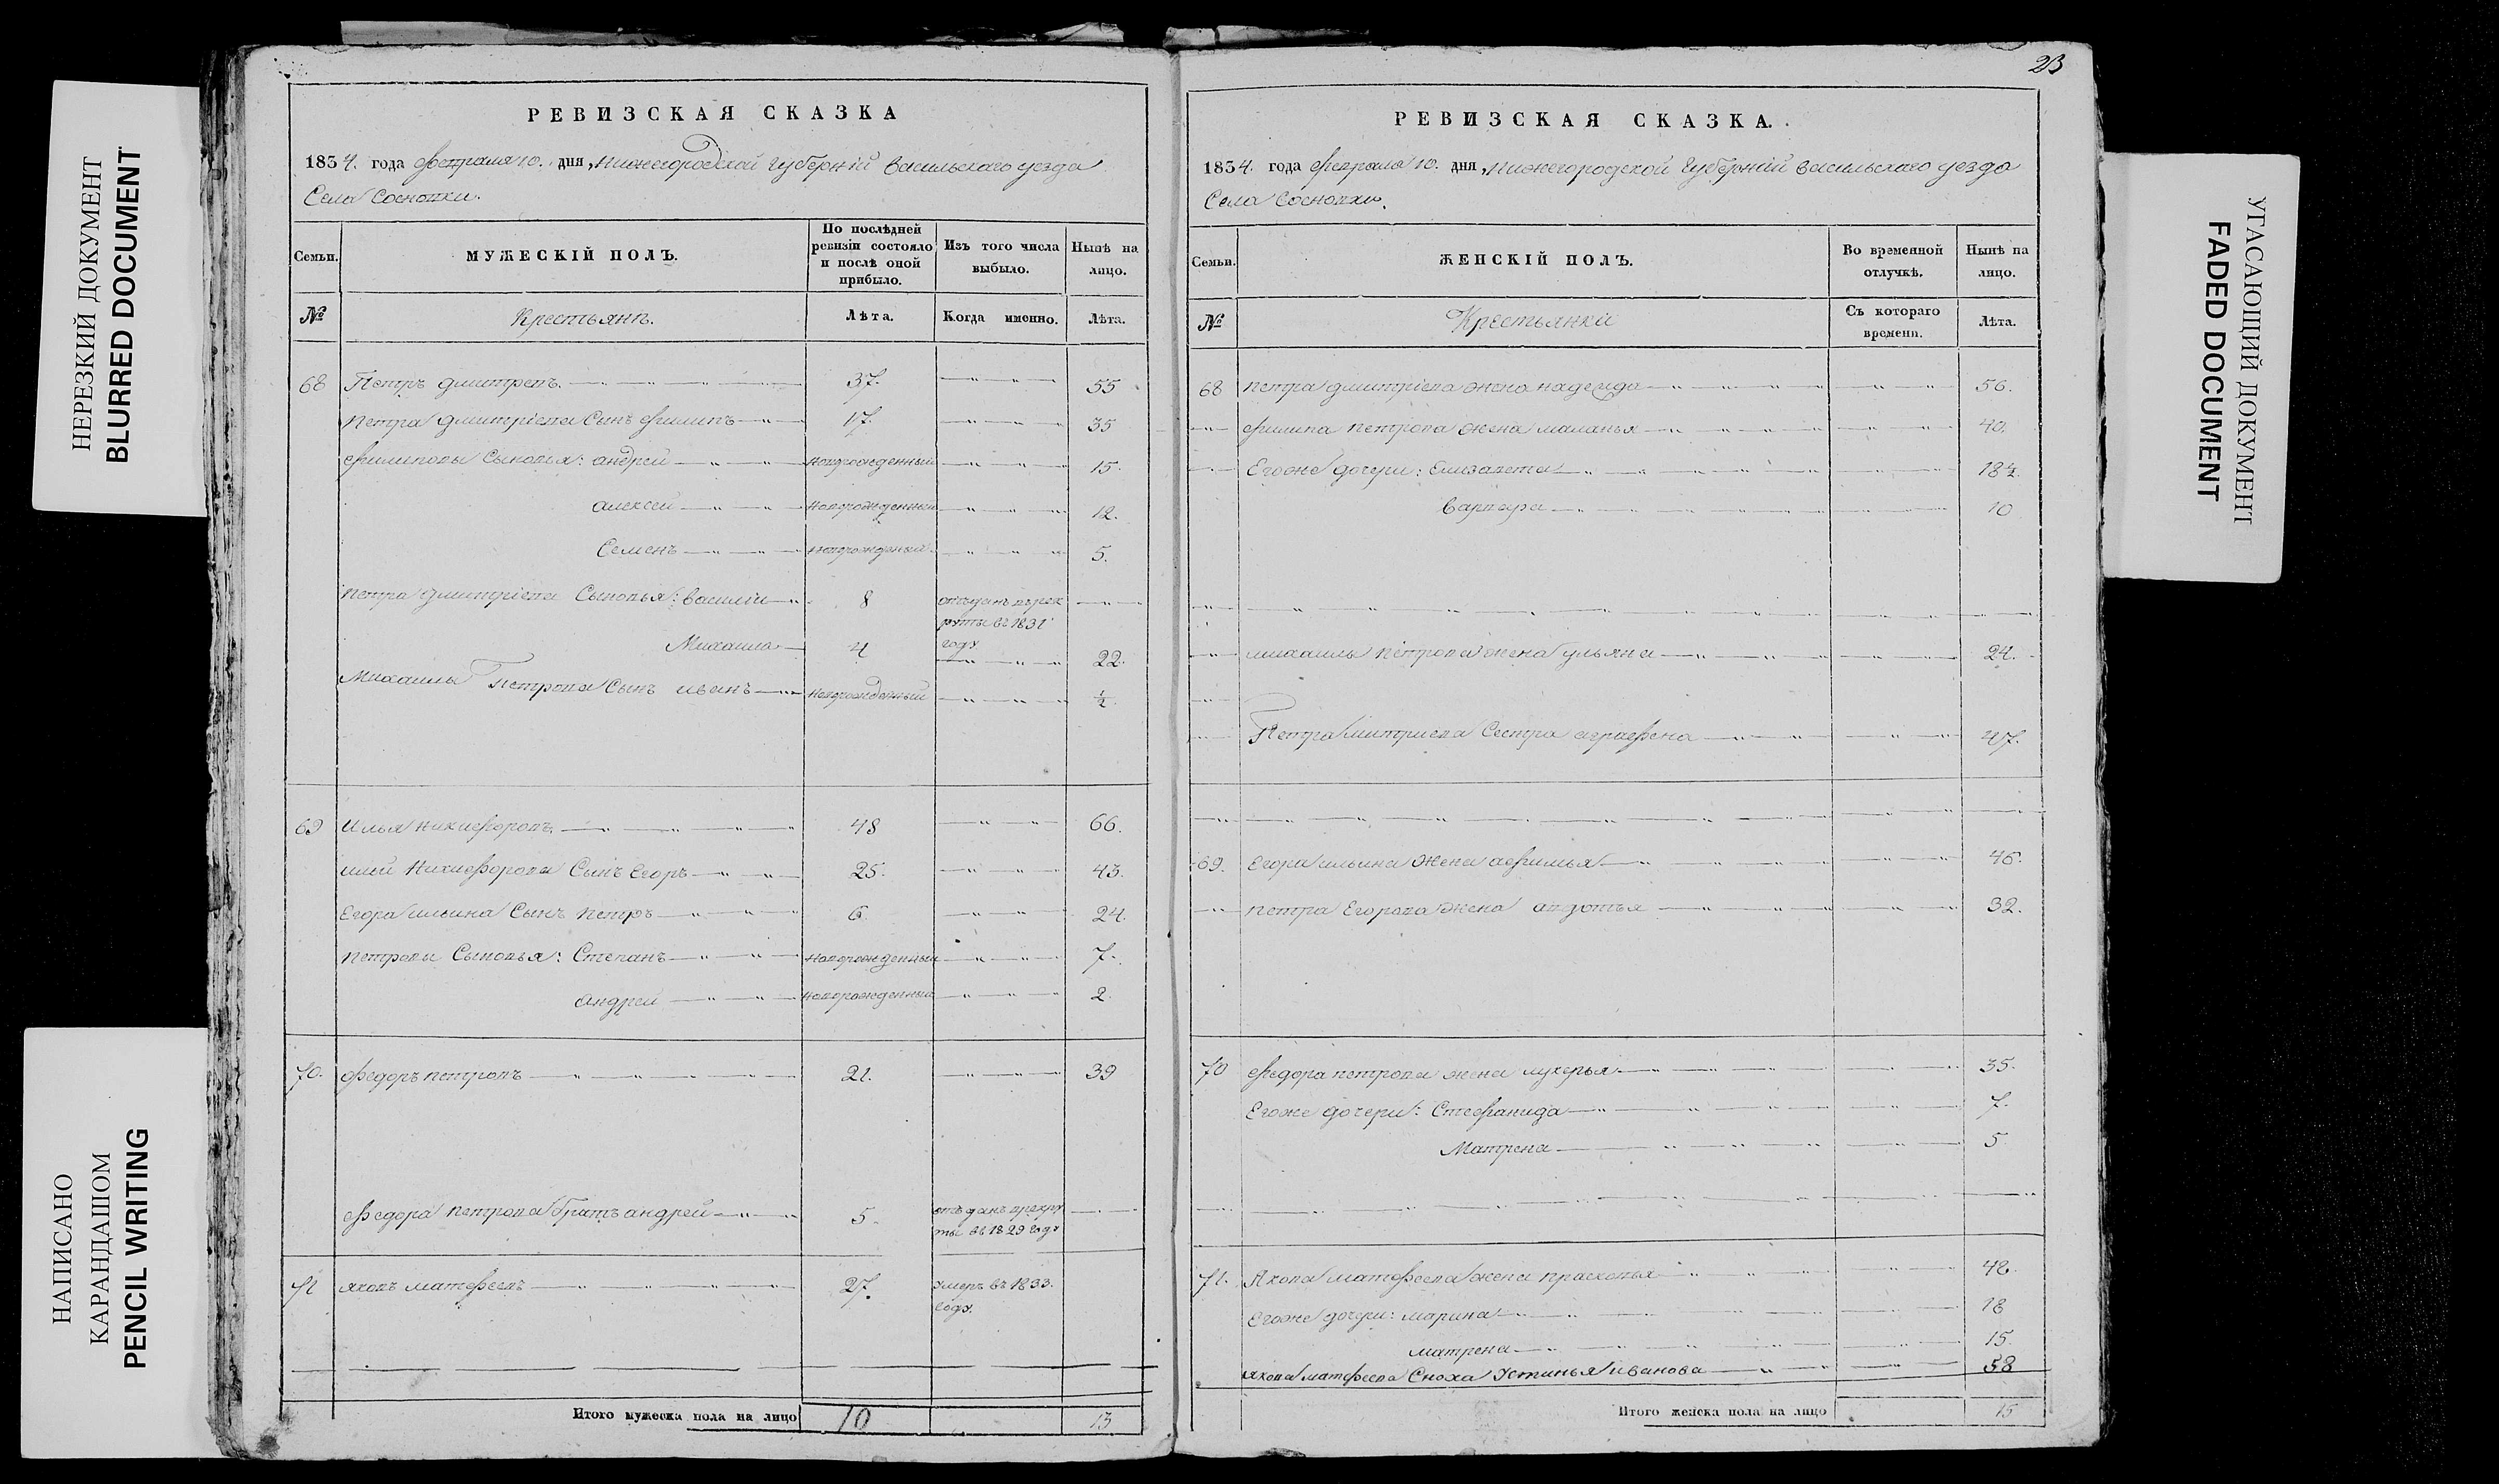 НЕРЕЗКИЙ ДОКУМЕНТ
BLURRED DOCUMENT
НАПИСАНО
КАРАНДАШОМ
PENCIL WRITING
РЕВИЗСКАЯ СКАЗКА
1834. года февраля 10. дня, нижегородской губерніи васильскаго уезда
Села Сосновки.
Семьи.
МУЖЕСКІЙ ПОЛЪ.
По послѣдней ревизіи состояло и послѣ оной прибыло.
Изъ того числа выбыло.
Нынѣ на лицо.
№
Крестьянъ.
Лѣта.
Когда именно.
Лѣта.
68 Петръ дмитревъ. 37. 55
петра дмитріева Сынъ филипъ 17. 35
филиповы Сыновья: андрей новорожденный 15.
алексей новорожденный 12.
Семенъ новорожденный 5.
петра дмитріева Сыновья: василии 8 отъданъ върек
руты въ 1831
году
Михаила 4 22.
Михаилы Петрова Сынъ иванъ новорожденный 1/2
69 Илья никифоровъ 48 66.
ильи Никифорова Сынъ Егоръ 25. 43.
Егора ильина Сынъ петръ 6. 24.
петровы Сыновья: Степанъ новорожденный 7.
андреи новорожденный 2.
70. федоръ петровъ 21. 39
федора петрова братъ андрей 5. отъданъ врекру
ты въ 1829 году
71 яковъ матфеевъ 27. умеръ въ 1833.
году.
Итого мужеска пола на лицо 10 13
23
РЕВИЗСКАЯ СКАЗКА.
1834. года февраля 10. дня, нижегородской губерніи васильскаго уезда
Села Сосновки.
Семьи.
ЖЕНСКІЙ ПОЛЪ.
Во временной отлучкѣ.
Нынѣ на лицо.
№
Крестьянки
Съ котораго времени.
Лѣта.
68 петра дмитріева жена надежда 56.
филипа петрова жена маланья 40.
Егоже дочери: Елизавета 18 1/2
варвара 10
михаилы петрова жена ульяна 24.
Петра митриева Сестра аграфена 47.
69. Егора ильина жена афимья 45.
петра Егорова жена авдотья 32.
70 федора петрова жена лукерья 35.
Егоже дочери: Стефанида 7.
Матрена 5
71. Якова матфеева жена прасковья 48
Егоже дочери: марина 18
матрена 15.
якова матфеева Сноха Устинья иванова 58
Итого женска пола на лицо 15
УГАСАЮЩИЙ ДОКУМЕНТ
FADED DOCUMENT